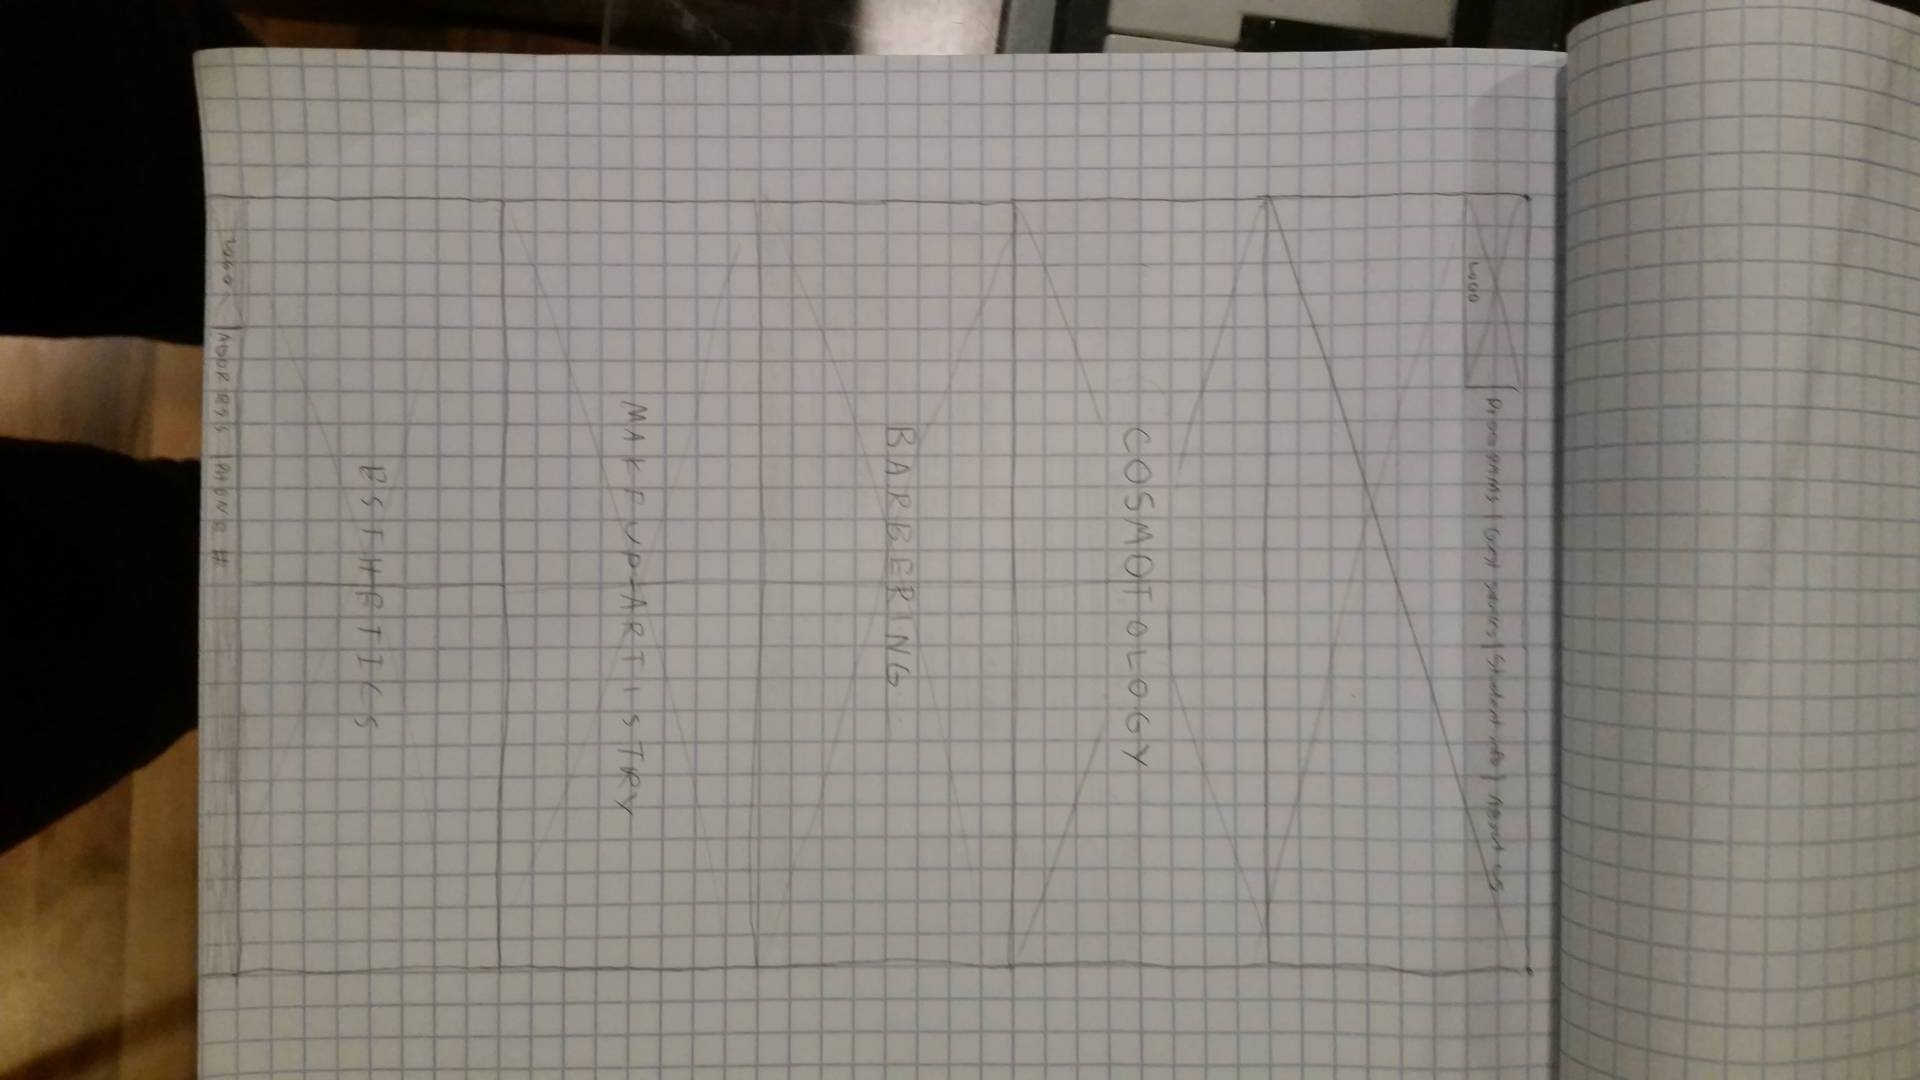 LOGO
Programs | Guest Services | Student info | About us
COSMOTOLOGY
BARBERING
MAKEUP-ARTISTRY
ESTHETICS
LOGO | ADDRESS | PHONE #